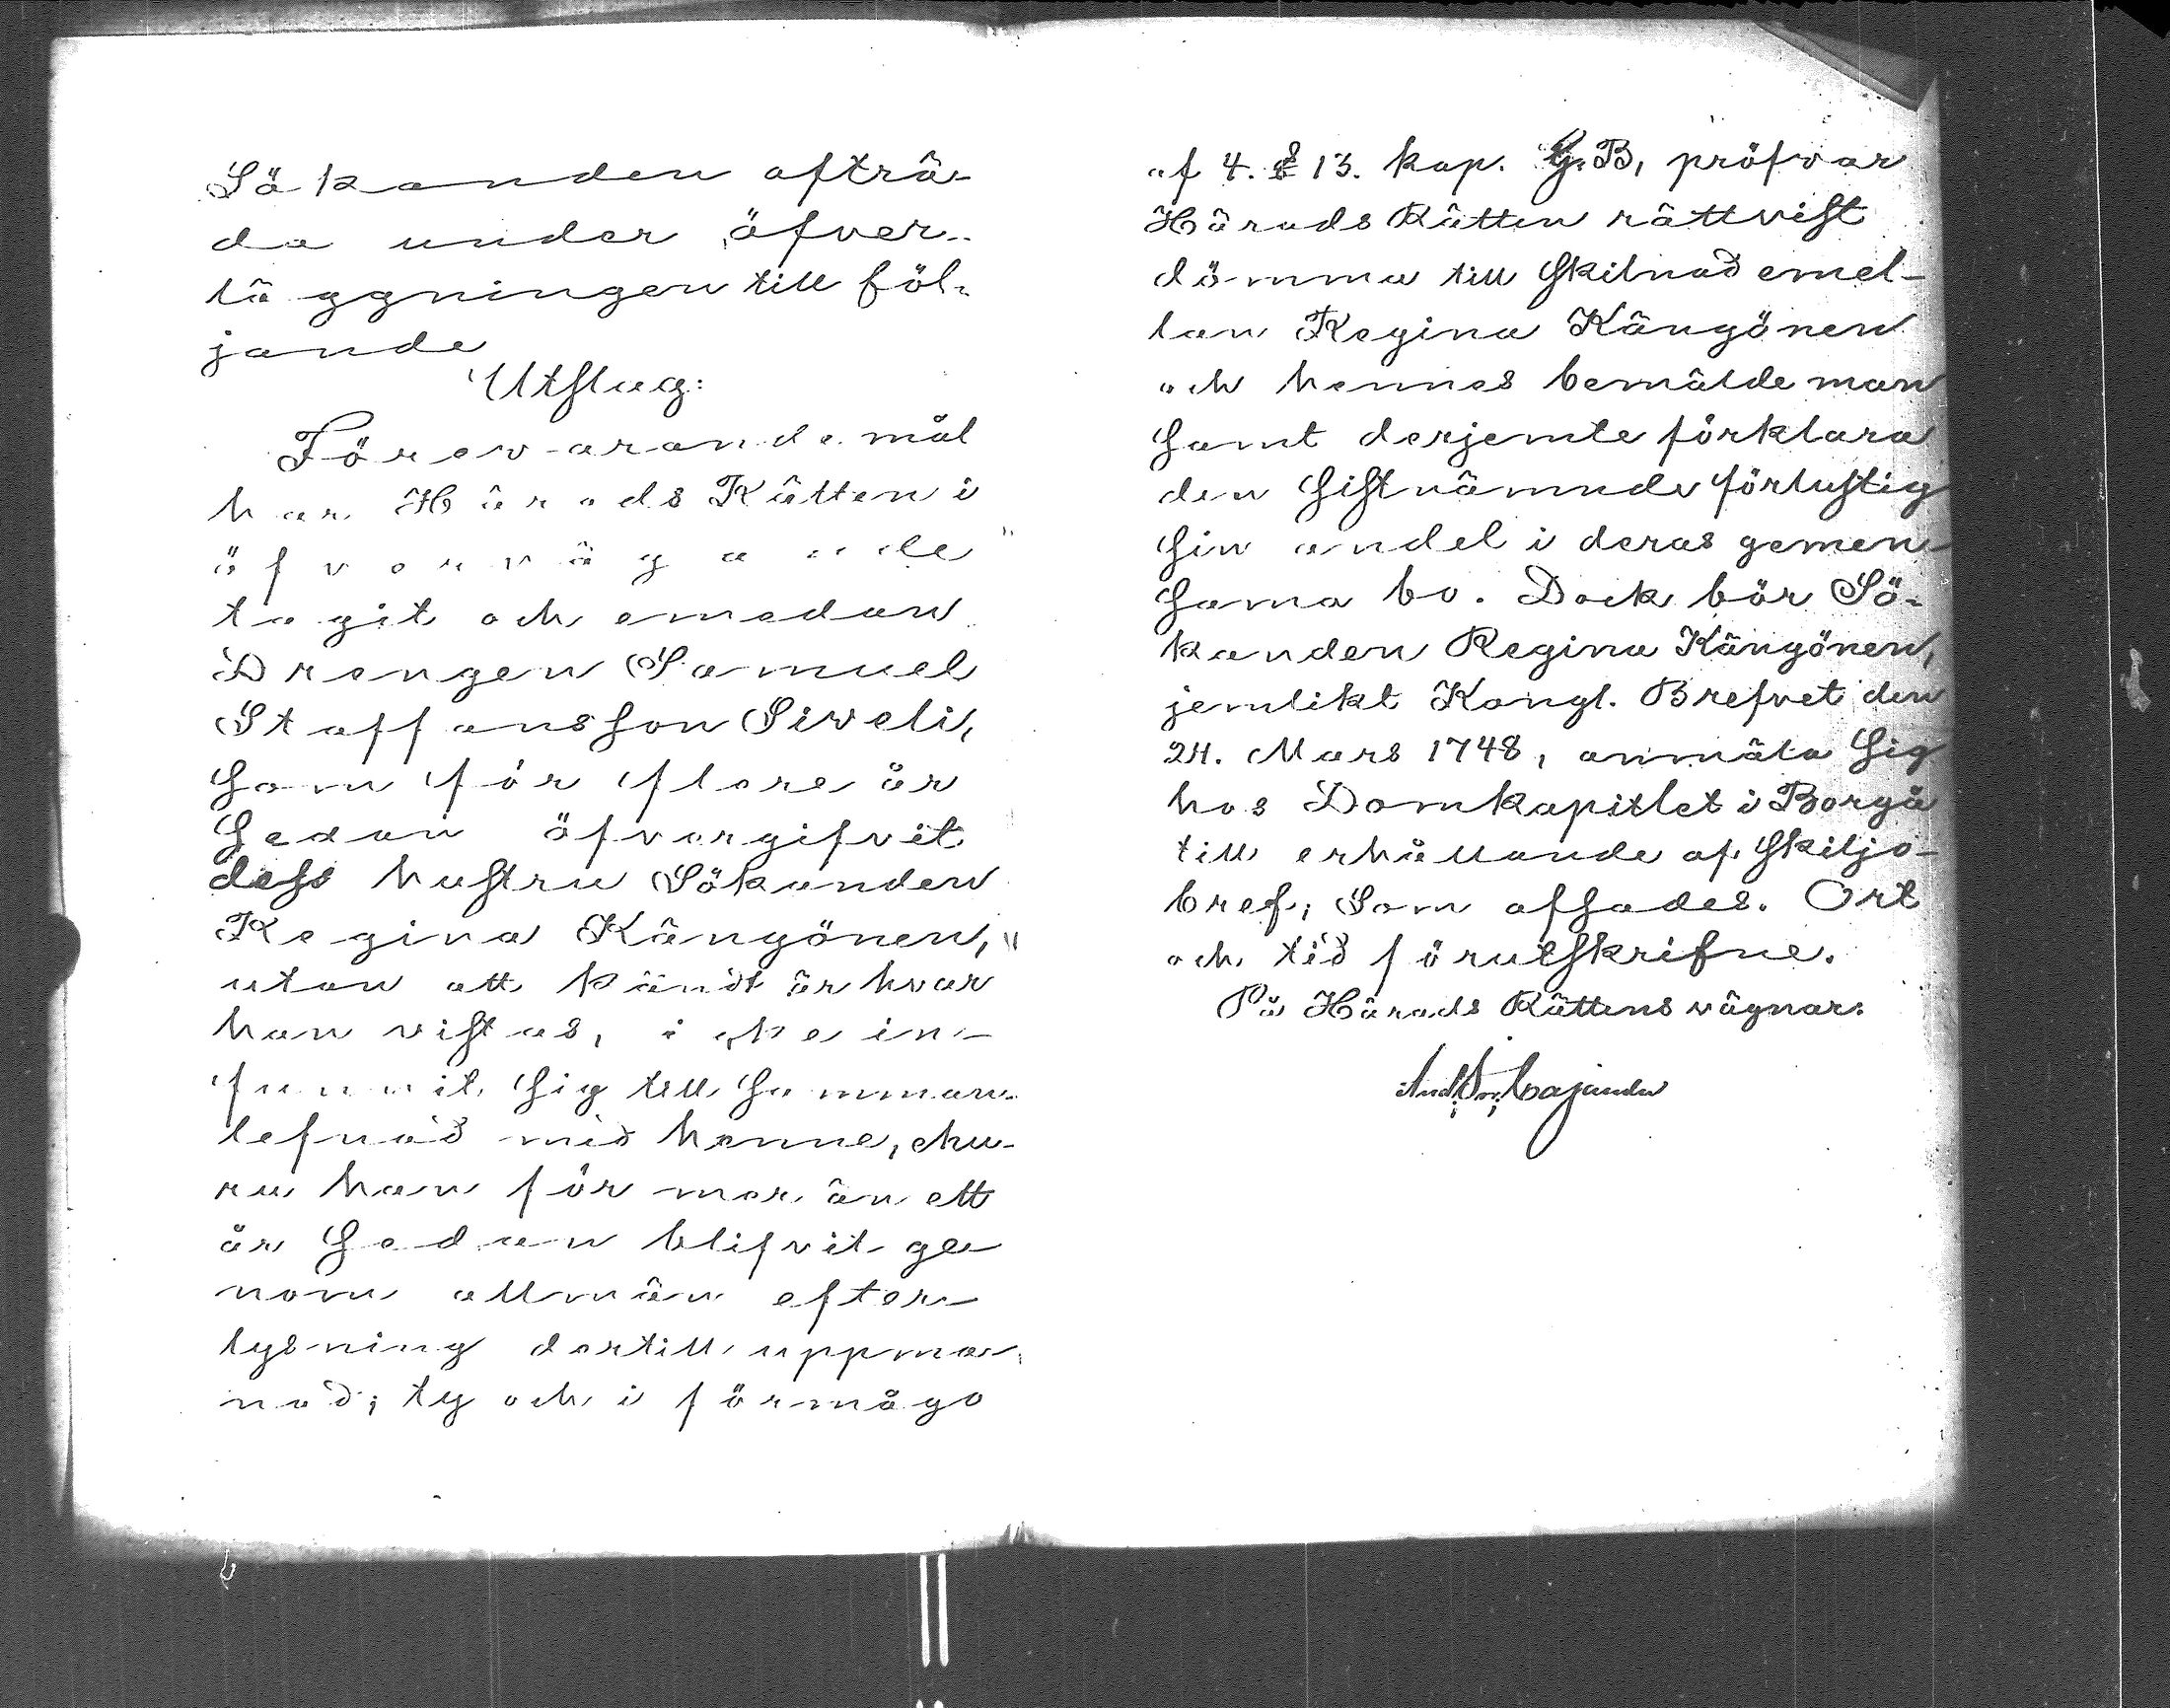 Sökanden afträ-
da under öfver-
läggningen till föl-
jande
Utslag:
Förevarande mål
har Härads Rätten i
öfvervägande
tagit och emedan
Drengen Samuel
Staffansson Siveli,
som för flere år
sedan öfvergifvit
dess hustru Sökanden
Regina Kängönen,
utan att kändt är hvar
han vistas, icke in-
funnit sig till samman-
lefnad med henne, ehu-
ru han för mer än ett
år sedan blifvit ge-
nom allmän efter-
lysning dertill uppma-
nad; ty och i förmågo
af 4. § 13. kap. G. B, pröfvar
Härads Rätten rättvist
dömma till skilnad emel-
lan Regina Kängönen
och hennes bemälde man
samt derjemte förklara
den sistnämnde förlustig
sin andel i deras gemen-
sama bo. Dock bör Sö-
kanden Regina Kängönen,
jemlikt Kongl. Brefvet den
24. Mars 1748, anmäla sig
hos Domkapitlet i Borgå
till erhållande af skiljo-
bref; Som afsades. Ort
och tid förutskrifne.
På Härads Rättens vägnar:
Cajander